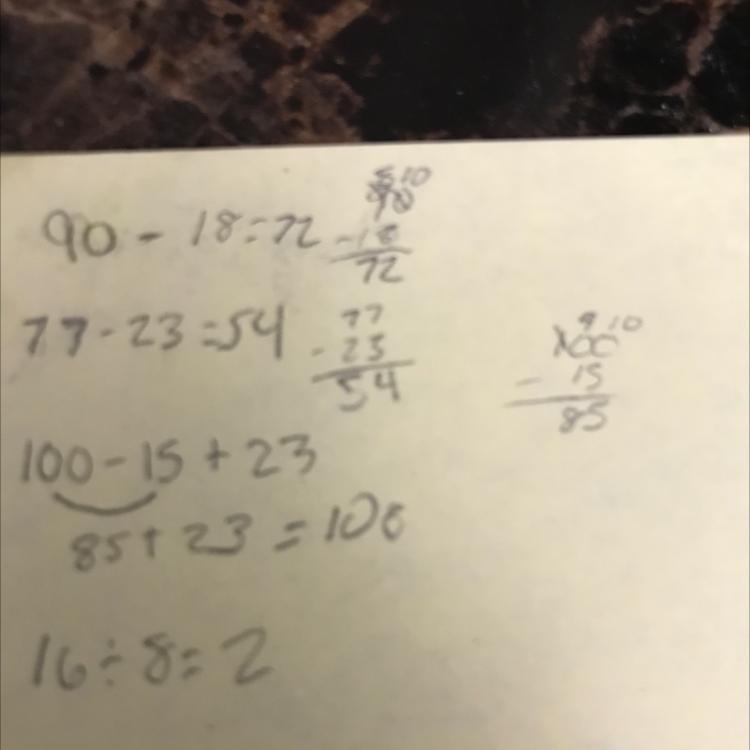 90 - 18 = 72
8 10
90
- 18
72
77 - 23 = 54
77
- 23
54
9 10
100
- 15
85
100 - 15 + 23
85 + 23 = 108
16 ÷ 8 = 2